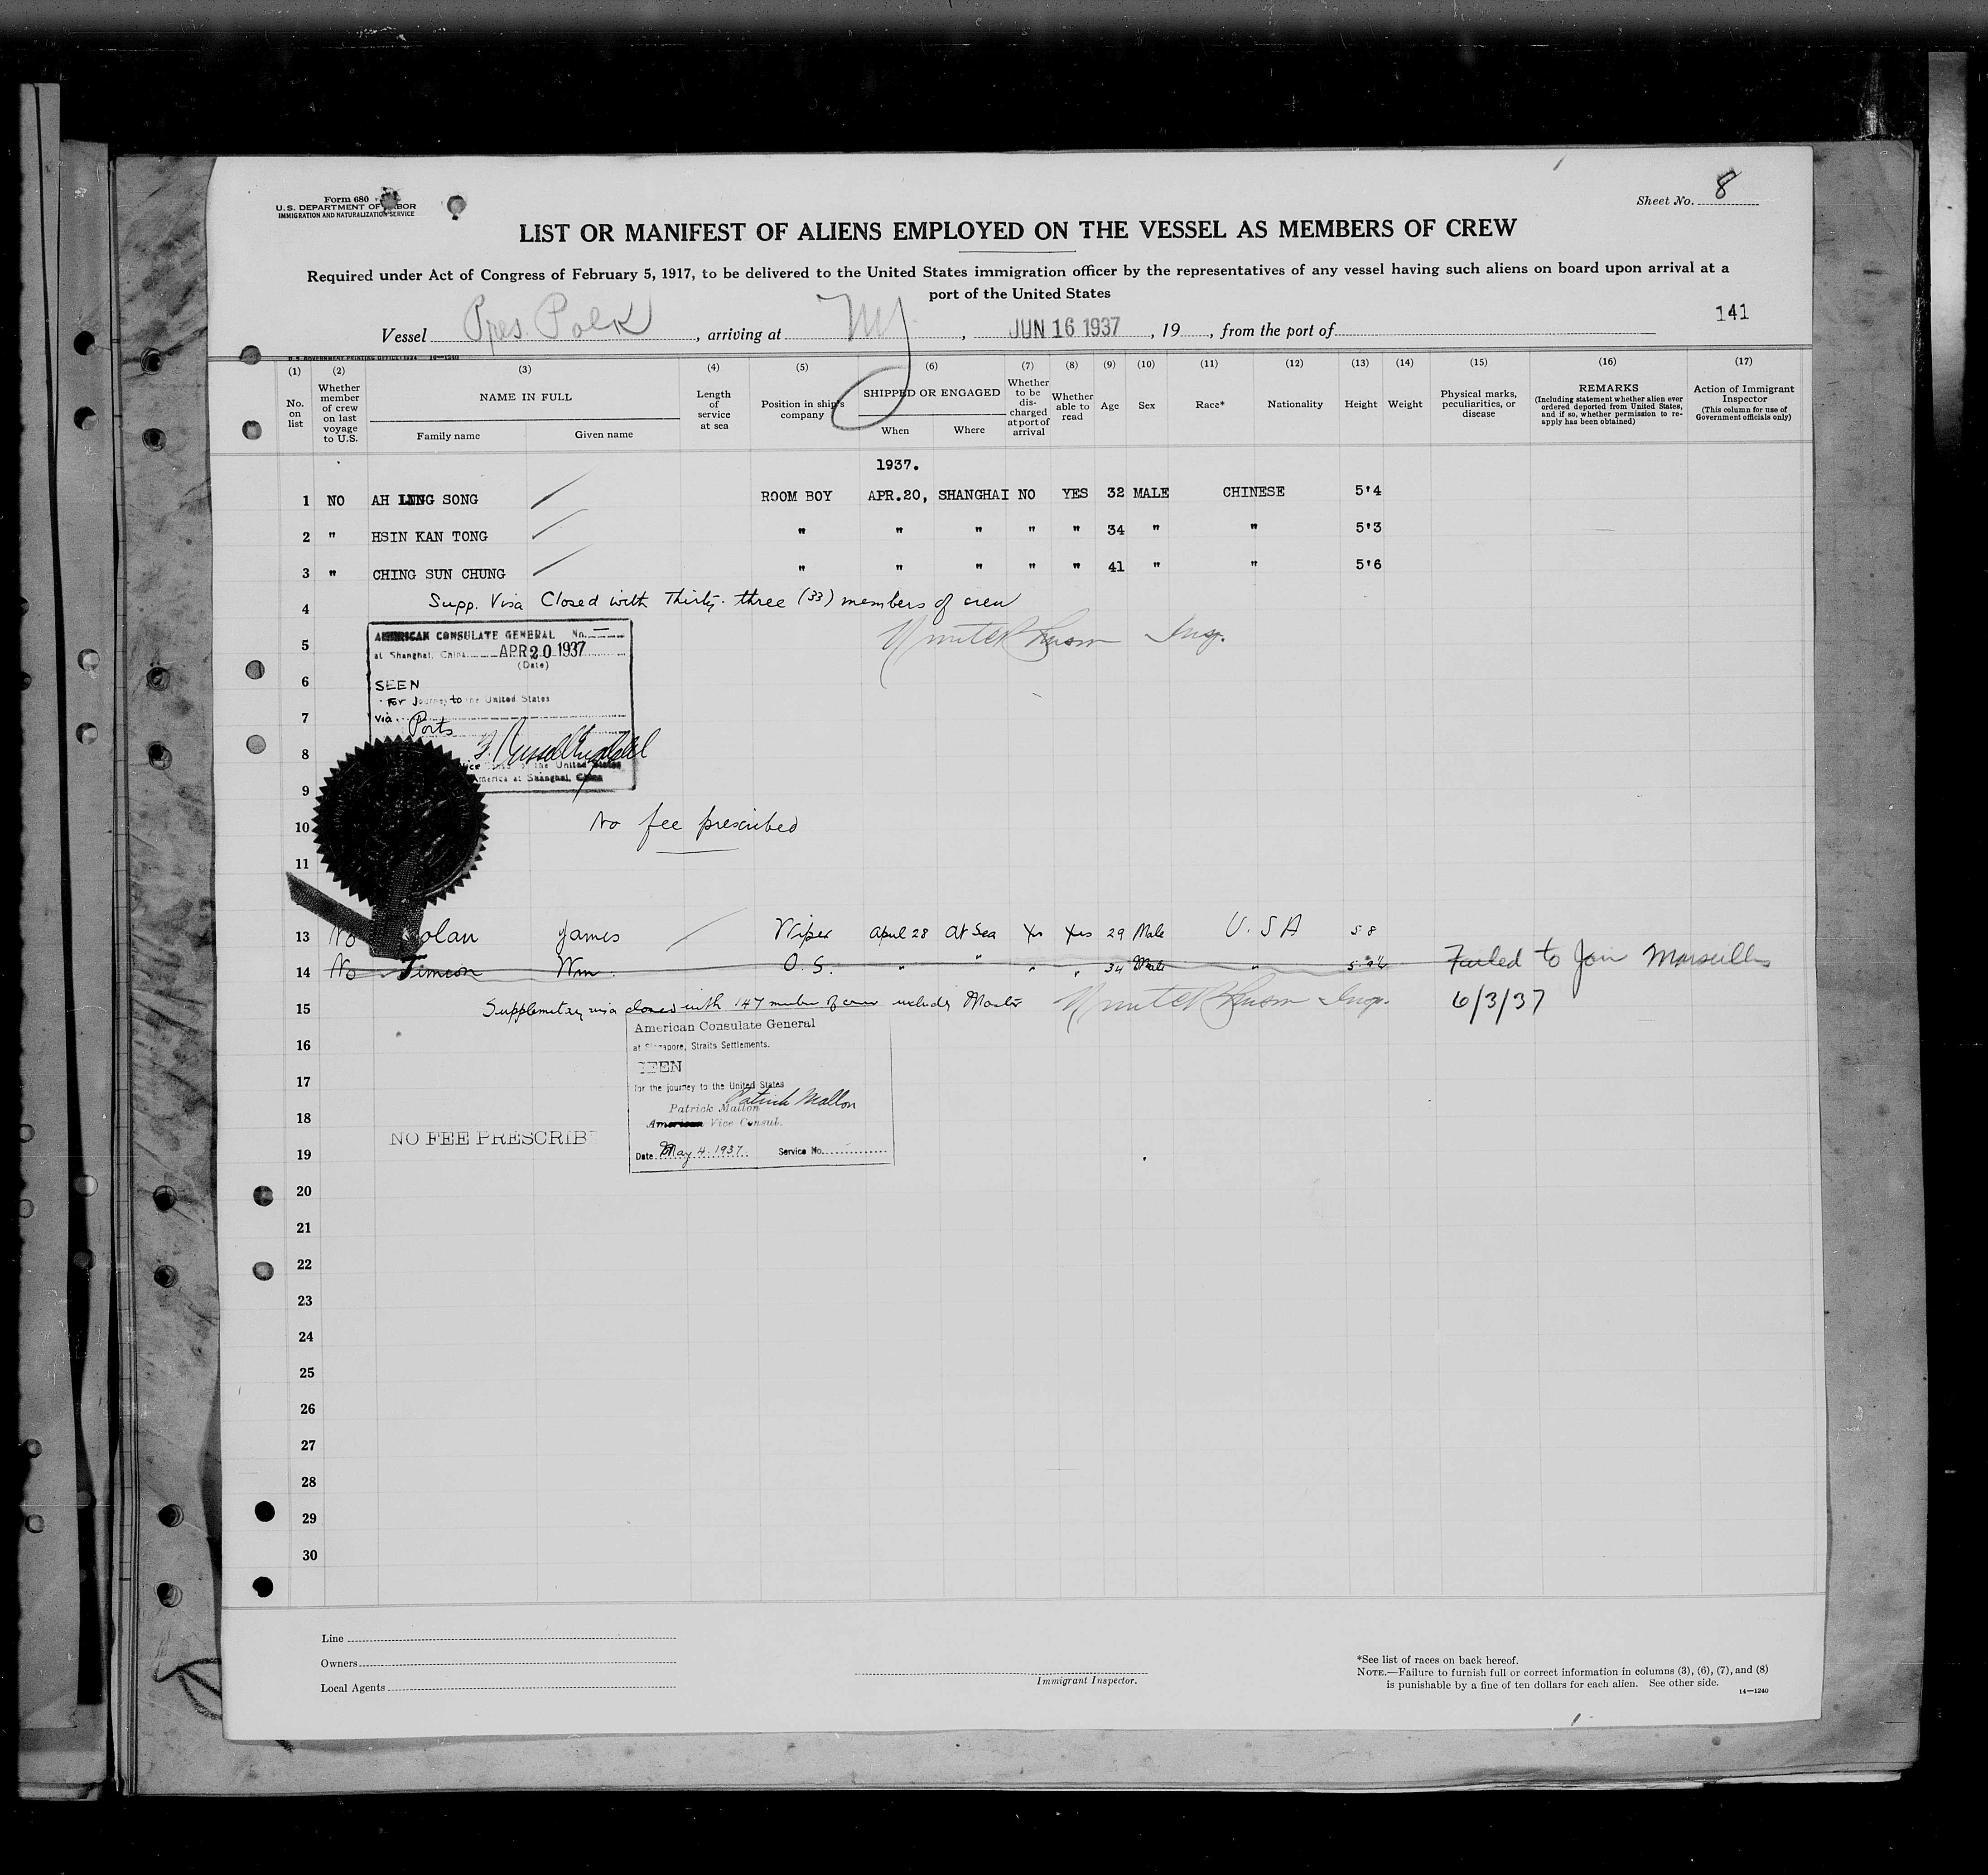 Form 680
U.S. DEPARTMENT OF LABOR
IMMIGRATION AND NATURALIZATION SERVICE
Sheet No. 8
LIST OR MANIFEST OF ALIENS EMPLOYED ON THE VESSEL AS MEMBERS OF CREW
Required under Act of Congress of February 5, 1917, to be delivered to the United States immigration officer by the representatives of any vessel having such aliens on board upon arrival at a
port of the United States
141
Vessel Pres. Polk, arriving at NY, JUN 16 1937, 19, from the port of
U.S. GOVERNMENT PRINTING OFFICE: 1934 14—1240
(1) (2) (3) (4) (5) (6) (7) (8) (9) (10) (11) (12) (13) (14) (15) (16) (17)
No. on list
Whether member of crew on last voyage to U.S.
NAME IN FULL
Family name Given name
Length of service at sea
Position in ship's company
SHIPPED OR ENGAGED
When Where
Whether to be discharged at port of arrival
Whether able to read
Age
Sex
Race*
Nationality
Height
Weight
Physical marks, peculiarities, or disease
REMARKS
(Including statement whether alien ever ordered deported from United States, and if so, whether permission to re-apply has been obtained)
Action of Immigrant Inspector
(This column for use of Government officials only)
1937.
1 NO AH LING SONG ROOM BOY APR.20, SHANGHAI NO YES 32 MALE CHINESE 5'4
2 " HSIN KAN TONG " " " " " 34 " " 5'3
3 " CHING SUN CHUNG " " " " " 41 " " 5'6
4 Supp. Visa Closed with Thirty-three (33) members of crew
5 Insp.
AMERICAN CONSULATE GENERAL No. —
at Shanghai, China APR 20 1937
(Date)
6 SEEN
For journey to the United States
7 via Ports
8
Vice Consul of the United States
America at Shanghai, China
9
10 No fee prescribed
11
13 No Nolan James Wiper April 28 At Sea Yes Yes 29 Male U.S.A 5 8
14 No Timcon Wm. O.S. " " " " 34 Male " Failed to Join Marseilles
15 Supplementary visa closed with 147 members of crew includes Master Insp. 6/3/37
American Consulate General
16 at Singapore, Straits Settlements.
SEEN
17 for the journey to the United States
Patrick Mallon
18 Patrick Mallon
American Vice Consul.
NO FEE PRESCRIB
19 Date May 4. 1937. Service No.
20
21
22
23
24
25
26
27
28
29
30
Line
Owners
Local Agents
Immigrant Inspector.
*See list of races on back hereof.
NOTE.—Failure to furnish full or correct information in columns (3), (6), (7), and (8)
is punishable by a fine of ten dollars for each alien. See other side.
14—1240